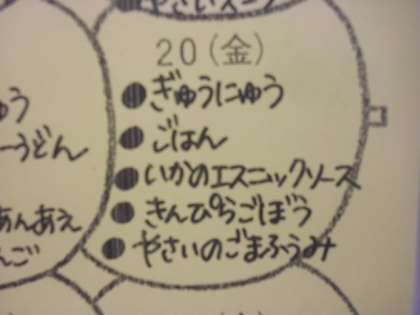 やさいスープ
20(金)
●ぎゅうにゅう
●ごはん
●いかのエスニックソース
●きんぴらごぼう
●やさいのごまふうみ
ゅう
ーうどん
あんあえ
んご